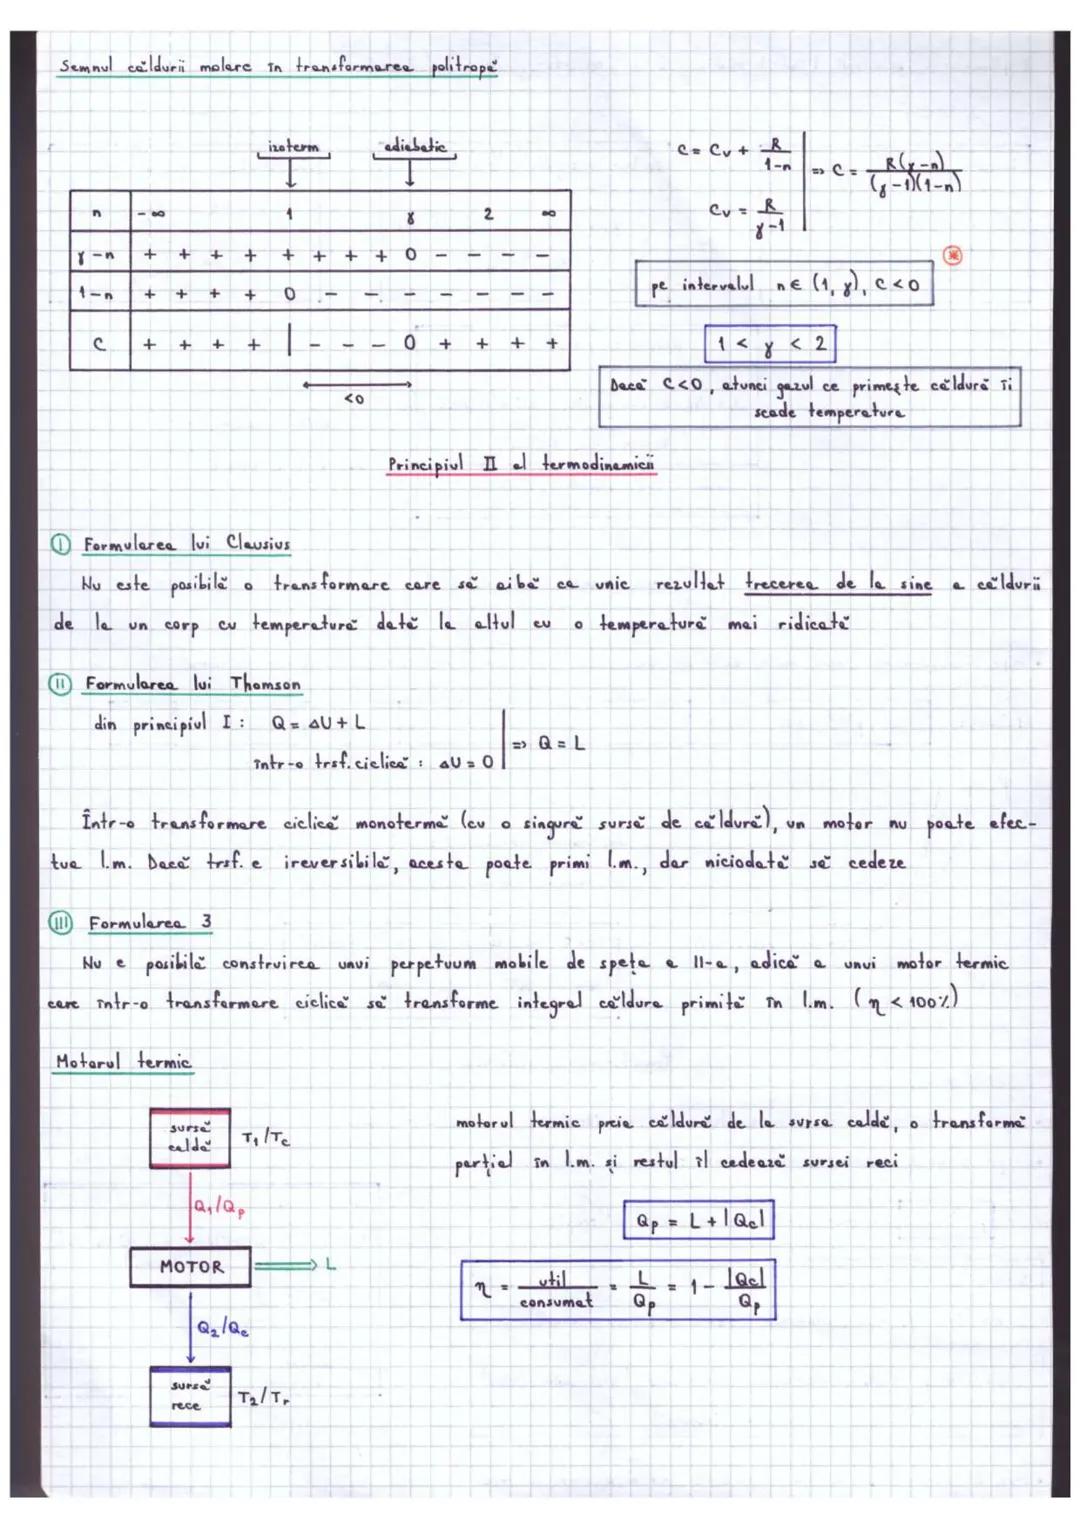 Semnul căldurii molare în transformarea politropă
izoterm adiabatic
n -∞ 1 γ 2 ∞
γ-n + + + + + + + + 0 - - - -
1-n + + + + 0 - - - - - - - -
C + + + + | - - - 0 + + + +
<0
C = Cv + R/(1-n)
Cv = R/(γ-1)
=> C = R(γ-n)/((γ-1)(1-n))
pe intervalul n∈ (1, γ), C<0
1 < γ < 2
Dacă C<0, atunci gazul ce primește căldură îi
scade temperatura
Principiul II al termodinamicii
I Formularea lui Clausius
Nu este posibilă o transformare care să aibă ca unic rezultat trecerea de la sine a căldurii
de la un corp cu temperatură dată la altul cu o temperatură mai ridicată
II Formularea lui Thomson
din principiul I: Q = ΔU + L
într-o trsf. ciclică: ΔU = 0
=> Q = L
Într-o transformare ciclică monotermă (cu o singură sursă de căldură), un motor nu poate efec-
tua l.m. Dacă trsf. e ireversibilă, acesta poate primi l.m., dar niciodată să cedeze
III Formularea 3
Nu e posibilă construirea unui perpetuum mobile de speța a II-a, adică a unui motor termic
care într-o transformare ciclică să transforme integral căldura primită în l.m. (η < 100%)
Motorul termic
sursă
caldă
T₁/Tc
Q₁/Qp
MOTOR => L
Q₂/Qc
sursă
rece
T₂/Tr
motorul termic preia căldură de la sursa caldă, o transformă
parțial în l.m. și restul îl cedează sursei reci
Qp = L + |Qc|
η = util/consumat = L/Qp = 1 - |Qc|/Qp